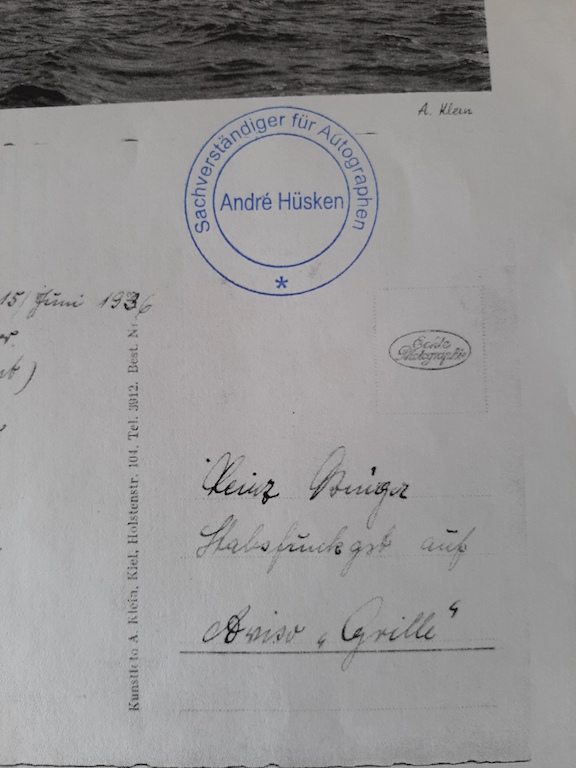 A. Klein
Sachverständiger für Autographen
André Hüsken
*
15/Juni 1936
Echte
Photographie
Kunstfoto A. Klein, Kiel, Holstenstr. 104, Tel. 3912. Best. Nr.
Heinz
Stabsfunkgst auf
Aviso „Grille“